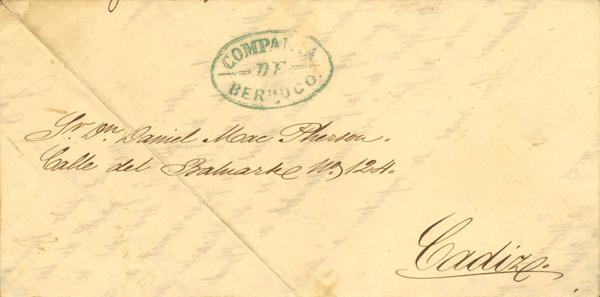 COMPAÑIA
DE
BERDUCO.
Sr. Dn. Daniel Mac Pherson.
Calle del Baluarte No. 124.
Cadiz.